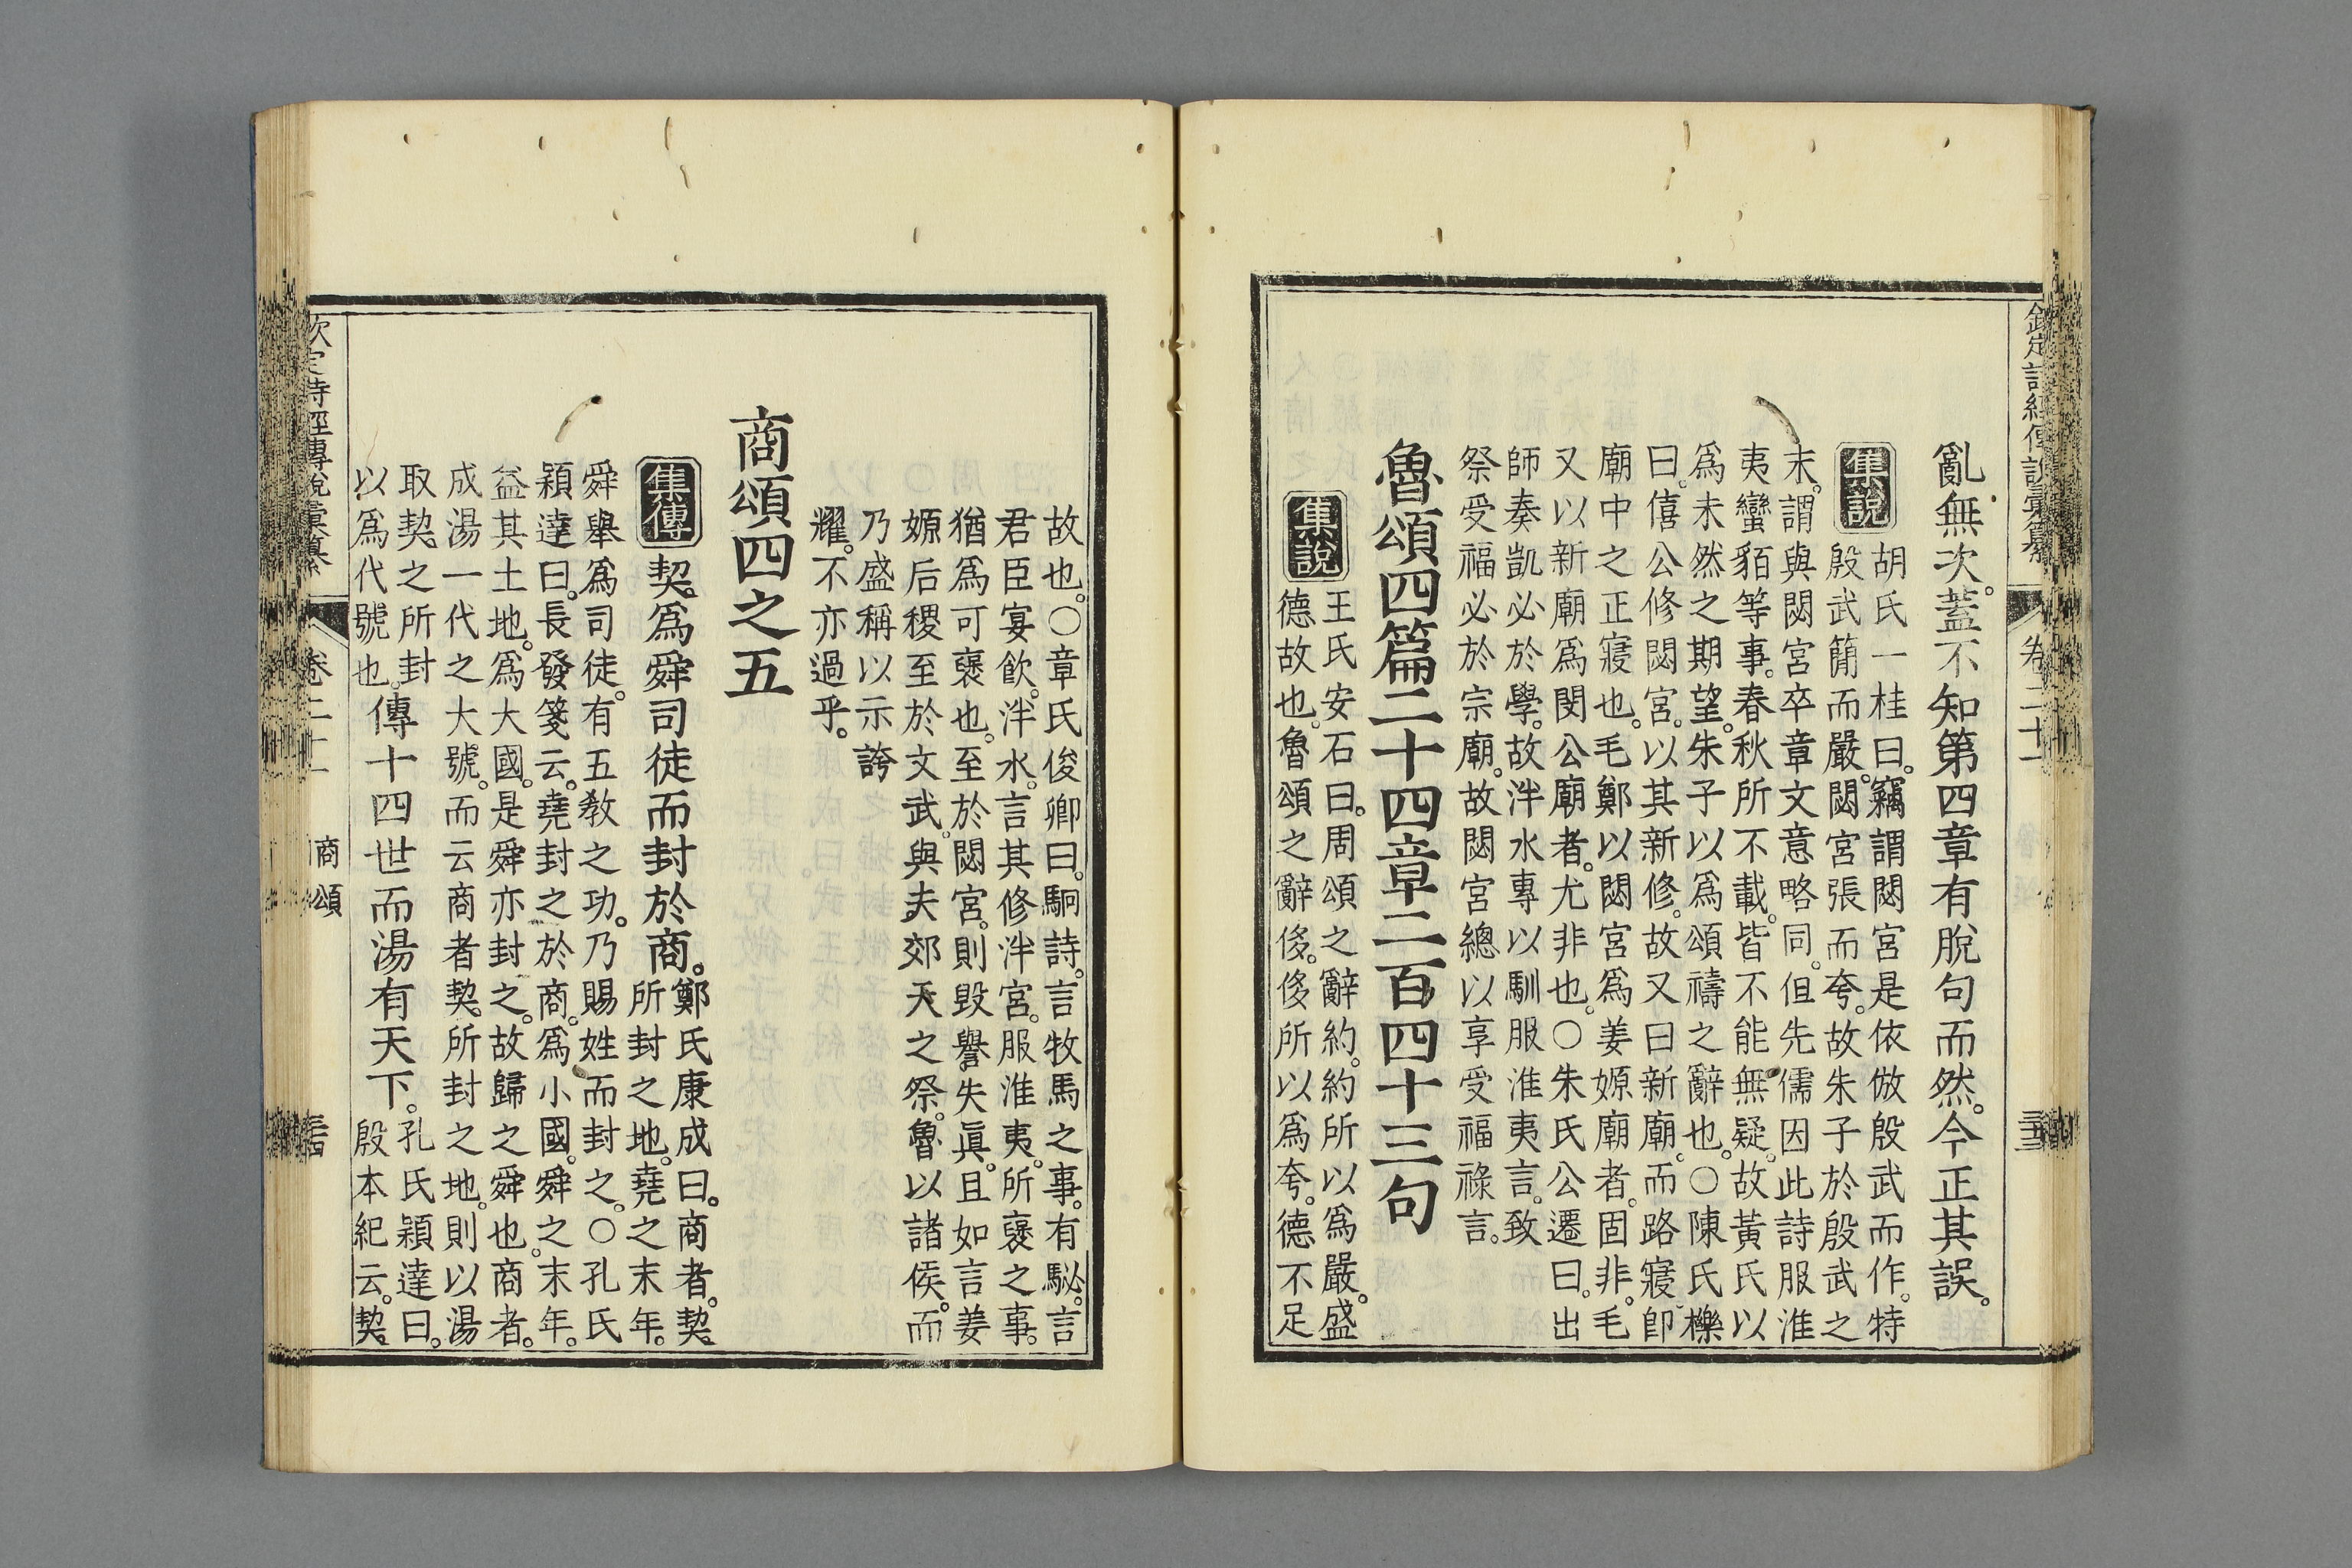 亂無次。蓋不知第四章有脫句而然。今正其誤。
集說
胡氏一桂曰。竊謂閟宮是依倣殷武而作。特
殷武簡而嚴。閟宮張而夸。故朱子於殷武之
末。謂與閟宮卒章文意略同。但先儒因此詩服淮
夷蠻貊等事。春秋所不載。皆不能無疑。故黃氏以
爲未然之期望。朱子以爲頌禱之辭也。○陳氏櫟
曰。僖公修閟宮。以其新修。故又曰新廟。而路寢卽
廟中之正寢也。毛鄭以閟宮爲姜嫄廟者。固非。毛
又以新廟爲閔公廟者。尤非也。○朱氏公遷曰。出
師奏凱必於學。故泮水專以馴服淮夷言。致
祭受福必於宗廟。故閟宮總以享受福祿言。
魯頌四篇二十四章二百四十三句
集說
王氏安石曰。周頌之辭約。約所以爲嚴。盛
德故也。魯頌之辭侈。侈所以爲夸。德不足
故也。○章氏俊卿曰。駉詩。言牧馬之事。有駜。言
君臣宴飮。泮水。言其修泮宮。服淮夷。所褒之事。
猶爲可褒也。至於閟宮。則毀譽失眞。且如言姜
嫄后稷至於文武。與夫郊天之祭。魯以諸侯。而
乃盛稱以示誇
耀。不亦過乎。
商頌四之五
集傳
契。爲舜司徒而封於商。
鄭氏康成曰。商者。契
所封之地。堯之末年。
舜舉爲司徒。有五敎之功。乃賜姓而封之。○孔氏
穎達曰。長發箋云。堯封之於商。爲小國。舜之末年。
益其土地。爲大國。是舜亦封之。故歸之舜也。商者。
成湯一代之大號。而云商者契所封之地。則以湯
取契之所封
以爲代號也。
傳十四世而湯有天下。
孔氏穎達曰。
殷本紀云。契
卷二十
商頌